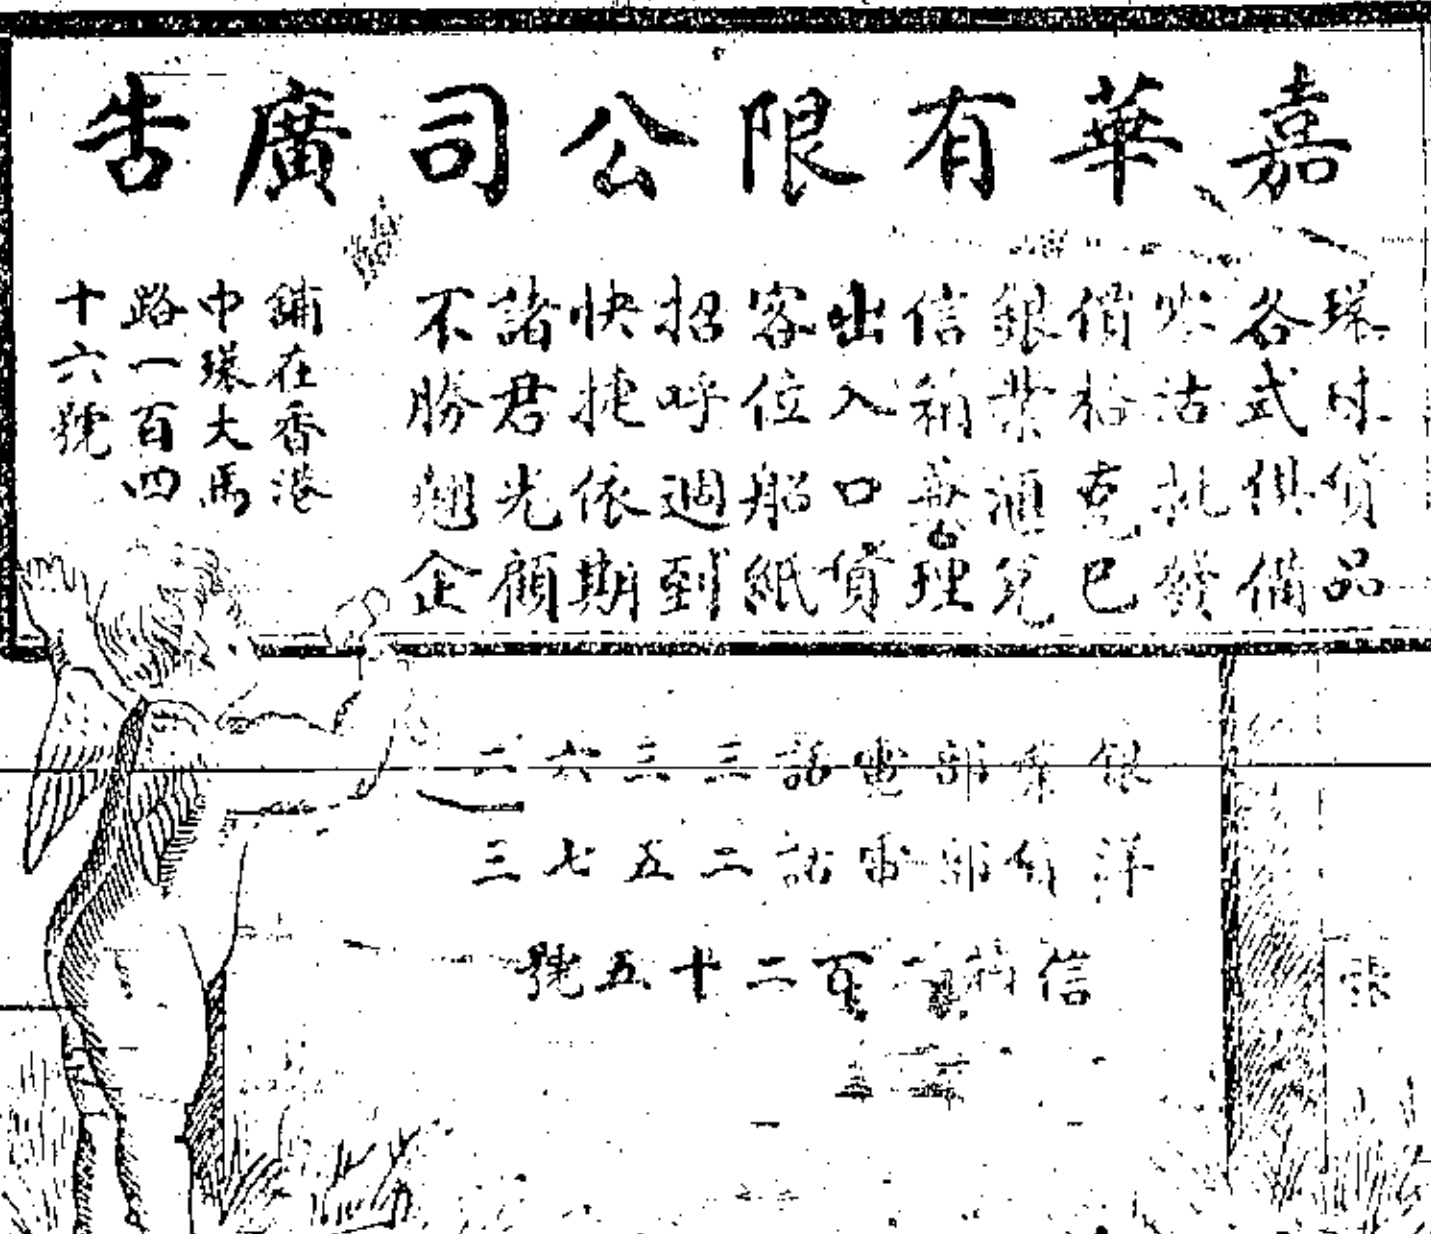 嘉華有限公司廣告
環球貨品
各式俱備
沽批發
價格克己
銀業滙兌
信箱 理
出入口貨
客位船紙
招呼週到
快捷依期
諸君光顧
不勝翹企
舖在香港
中環大馬
路一百四
十六號
銀業部電話三三六二
洋貨部電話二五七三
信箱 百二十五號